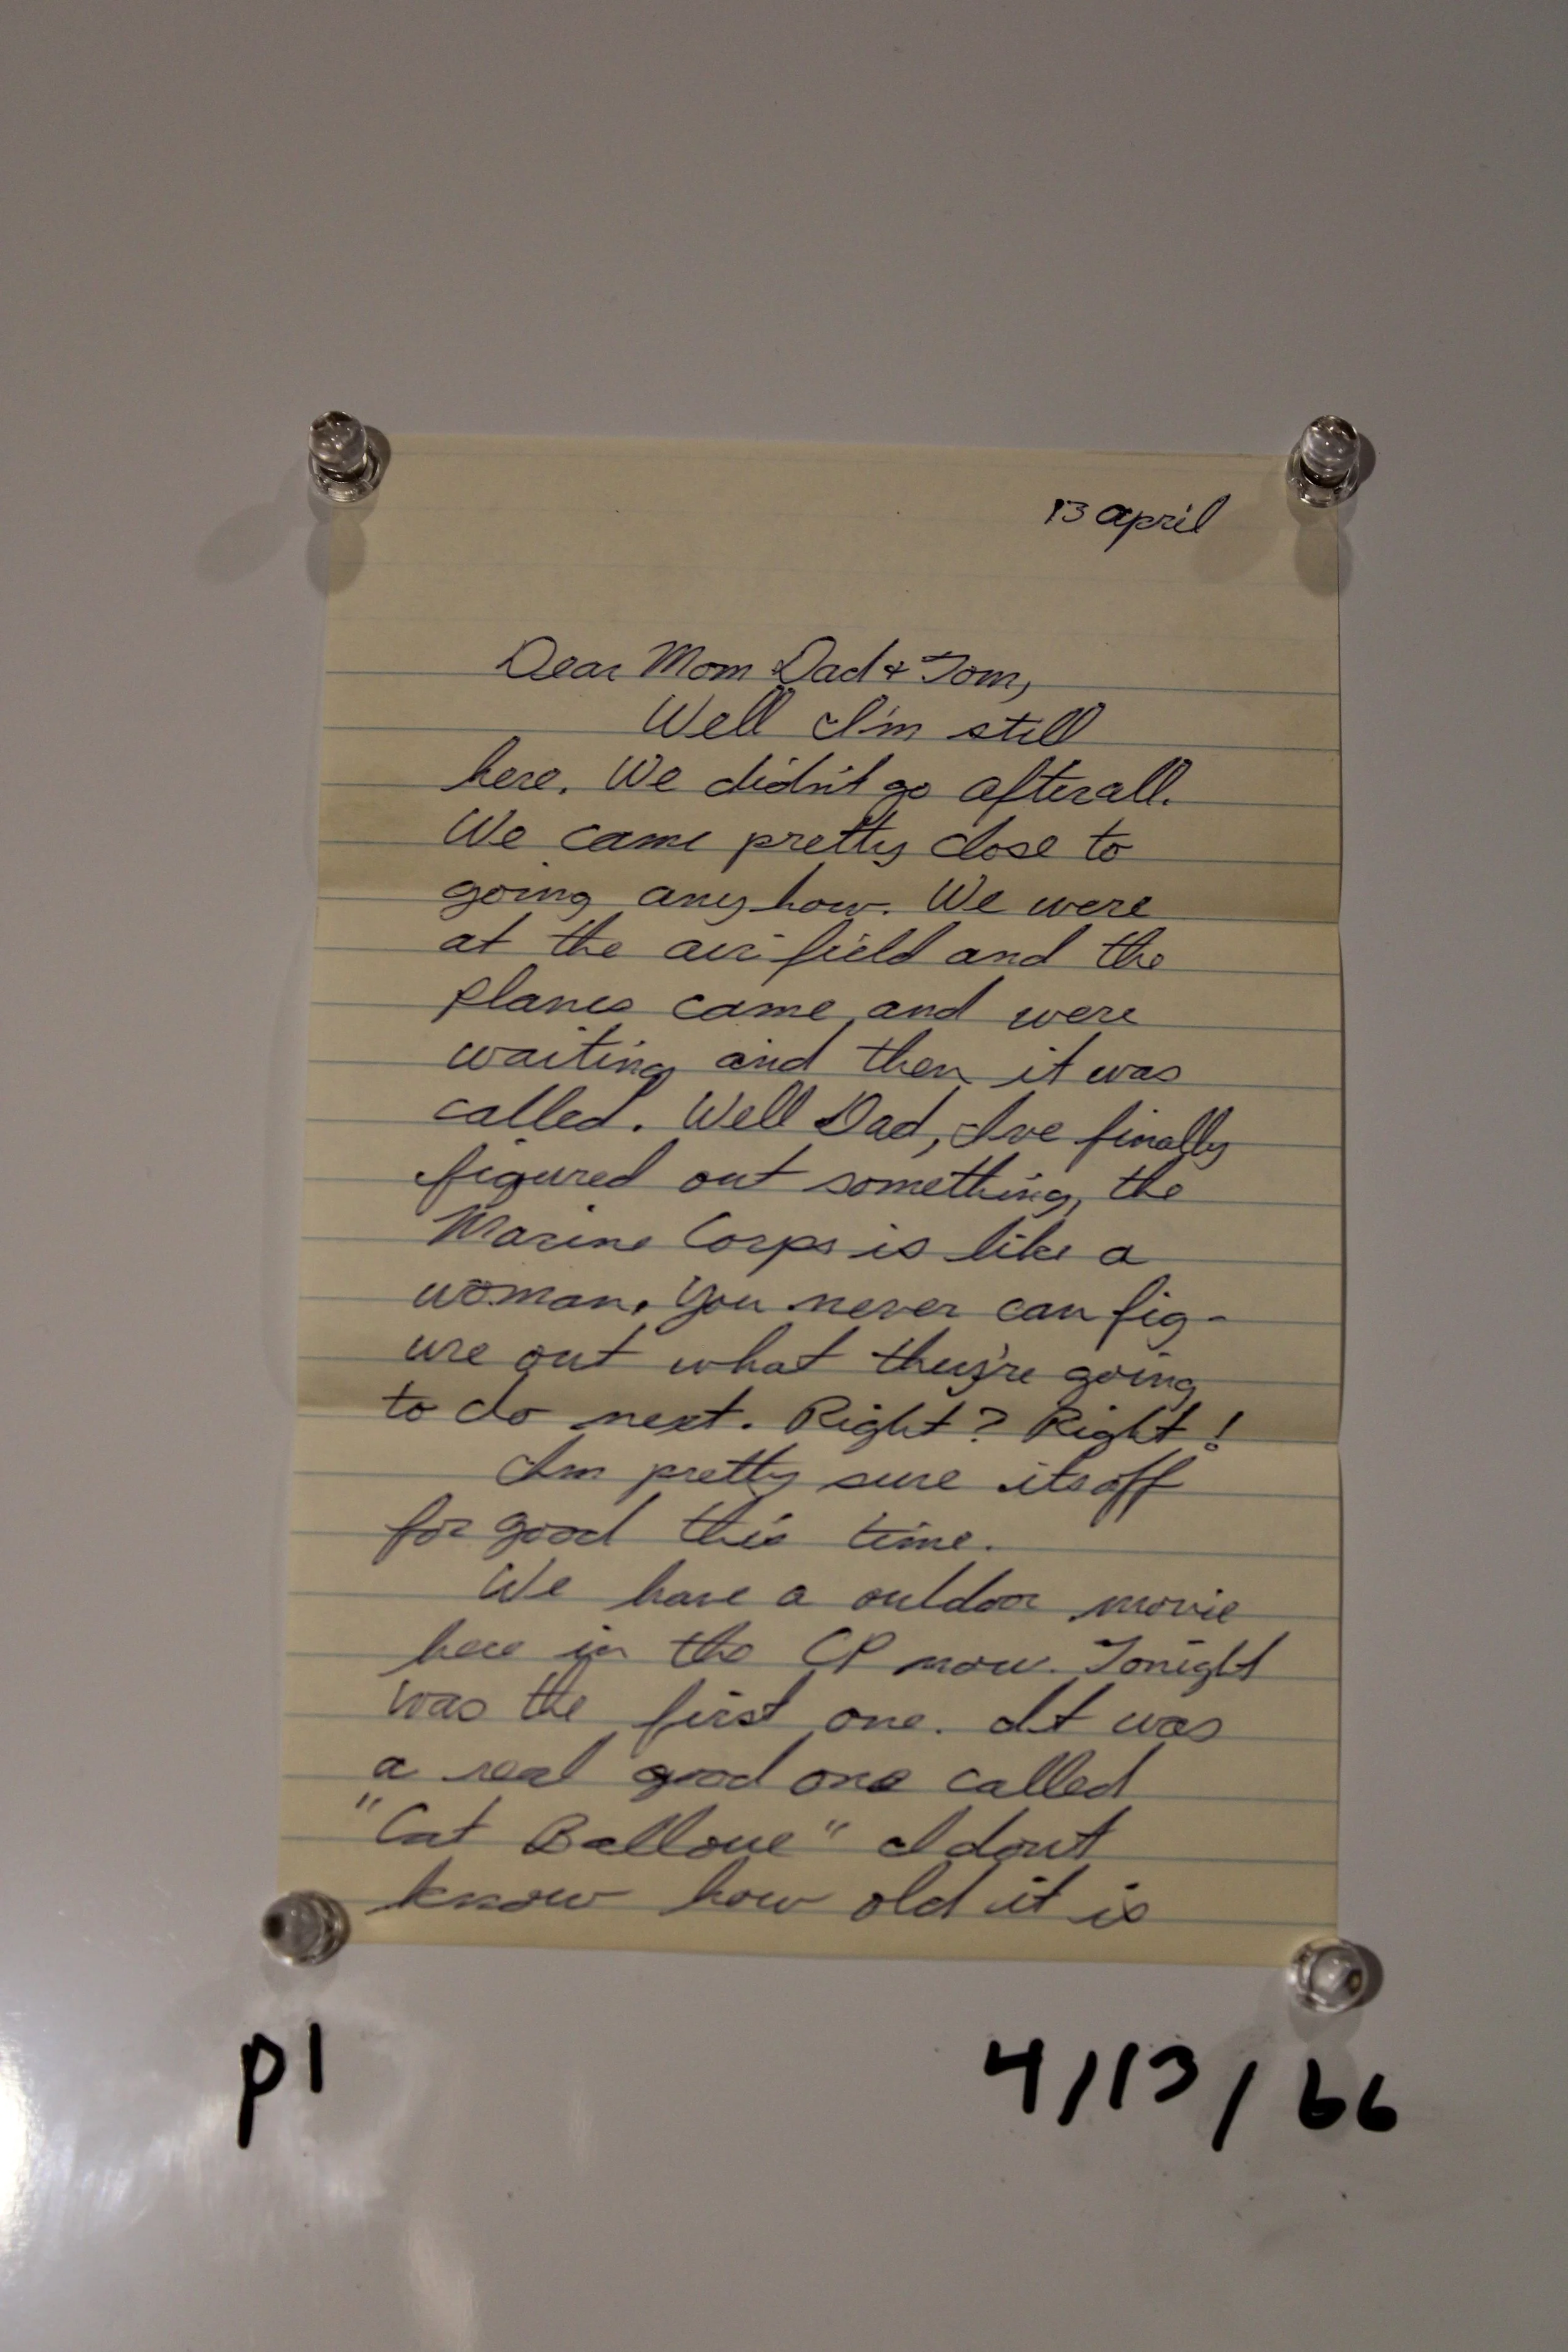 13 april
Dear Mom Dad & Tom,
Well I'm still
here. We didn't go afterall.
We came pretty close to
going anyhow. We were
at the air field and the
planes came and were
waiting and then it was
called. Well Dad, I've finally
figured out something, the
Marine Corps is like a
woman, you never can fig-
ure out what they're going
to do next. Right? Right!
I'm pretty sure its off
for good this time.
We have a outdoor movie
here in the CP now. Tonight
was the first one. It was
a real good one called
"Cat Balloue" I dont
know how old it is
p1 4/13/66